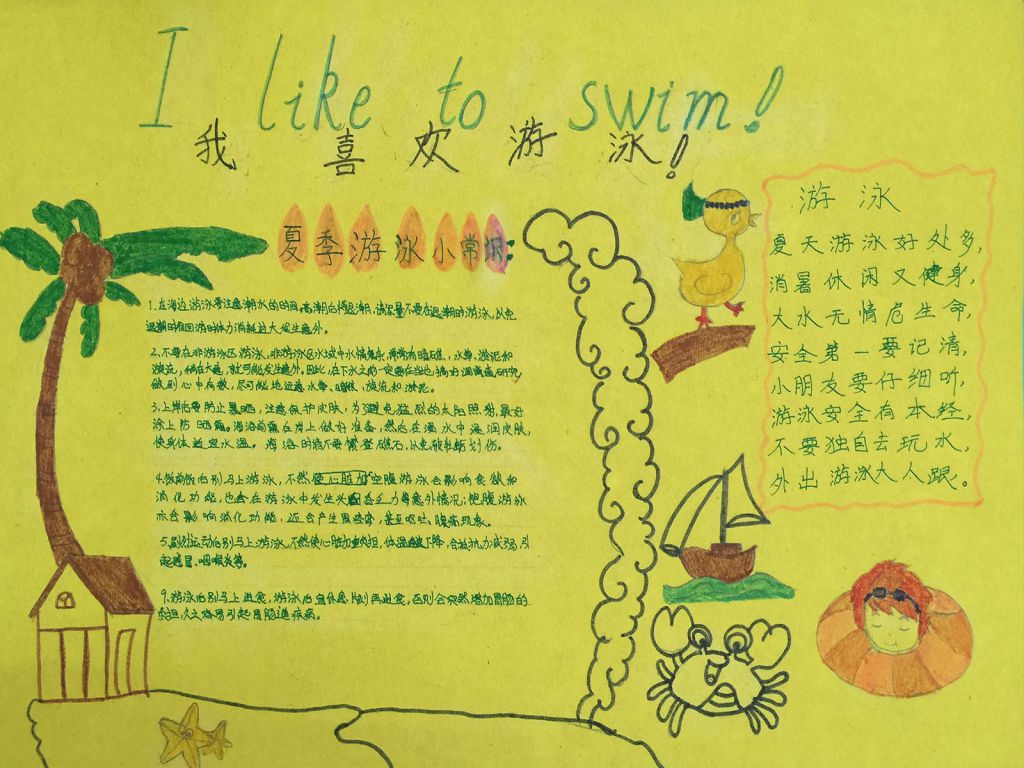 I like to swim!
我喜欢游泳!
夏季游泳小常识:
1.在海边游泳要注意潮水的时间,高潮后将退潮,请尽量不要在退潮时游泳,以免
退潮时往回游时体力消耗过大发生意外。
2.不要在非游泳区游泳,非游泳区水域中水情复杂,常常有暗礁,水草,淤泥和
漩流,稍有大意,就可能发生意外。因此,在下水之前一定要在当地
做到心中有数,尽可能地远离水草、暗礁、漩流和淤泥。
3.上岸后要防止暴晒,注意保护皮肤,为避免猛烈的太阳照射,最好
涂上防晒霜。海浴前需在岸上做好准备,然后在温水中湿润皮肤,
使身体适应水温。海浴时请不要攀登礁石,以免被牡蛎划伤。
4.饱饿后别马上游泳,不然空腹游泳会影响食欲和
消化功能,也会在游泳中发生头昏乏力等意外情况;饱腹游泳
亦会影响消化功能,还会产生胃痉挛,甚至呕吐、腹痛现象。
5.剧烈运动后别马上游泳,不然使心脏加重负担,体温下降,会抵抗力减弱,引
起感冒、咽喉炎等。
9.游泳后别马上进食,游泳后宜休息片刻再进食,否则会突然增加胃肠的
负担,久之容易引起胃肠道疾病。
游泳
夏天游泳好处多,
消暑休闲又健身,
大水无情危生命,
安全第一要记清,
小朋友要仔细听,
游泳安全有本经,
不要独自去玩水,
外出游泳大人跟。